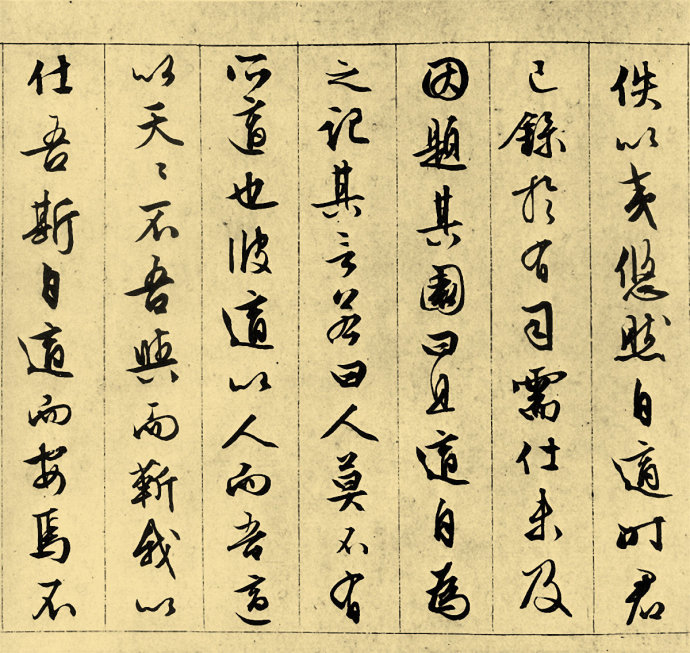 佚以夷悠然自適時君
已錄於有司需仕未及
因題其園曰且適自為
之記其言若曰人莫不有
所適也彼適以人而吾適
以天〻不吾與而靳我以
仕吾斯自適而安焉不